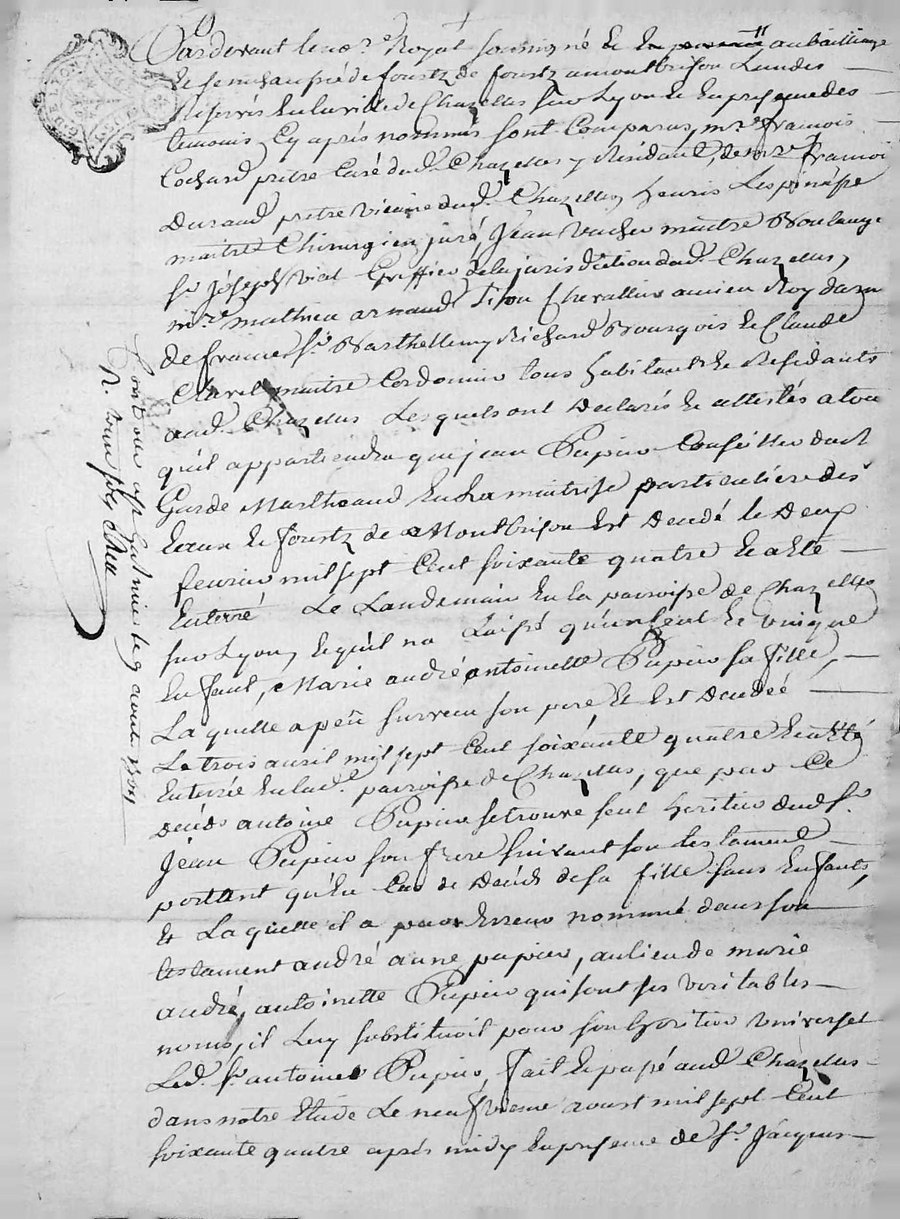 Pardevant le no.re Royal soussigné et au bailliage
et senechaussée de forestz de forestz a montbrison
reservés en la ville de Chazelles sur Lyon et en presence des
temoins cy après nommés sont Comparus, m.re francois
Cochard pretre Curé dud. Chazelles y Residant, de m.re francois
Durand pretre vicaire dud. Chazelles, henris Lespinasse
maitre Chirurgien juré, Jean Vacher maitre Boulange
s.r Joseph Vial Greffier de la jurisdiction dud. Chazelles,
m.re mathieu arnaud Chevallier ancien Roy darm
de france, s.r Barthellemy Richard Bourgois et Claude
maitre Cordonnier tous habitants et Residants
aud. Chazelles Lesquels ont declarés et attestés a tou
quil appartiendra que jean Pupier Conseiller du Roy
Garde Marteaud en La maitrise particuliere des
Eeaux et forestz de Montbrison Est decedé le deux
feurier mil sept Cent soixante quatre et a eté
Enterré Le Landemain En la paroisse de Chazelles
sur Lyon, et quil na Laissé qu'un seul et unique
Enfant, Marie andré antoinette Pupier sa fille,
La quelle a peü surveçu son pere et est decedée
Le trois auril mil sept Cent soixante quatre et a eté
Enterrée En lad. paroisse de Chazelles, que par Ce
decés antoine Pupier se trouve seul heritier dud. s.r
Jean Pupier son frere suivant son testament
portant qu'en Cas de decés de sa fille sans Enfants,
Et La quelle il a par Erreur nommé dans son
testament andré anne pupier, aulieu de marie
andré, antoinette Pupier qui sont ses veritables
noms, il Luy substituoit pour son heritier universel
Led. s.r antoine Pupier, fait et passé aud. Chazelles
dans notre Etude Le neufvieme aoust mil sept Cent
soixante quatre après midy En presence de s.r Jacques